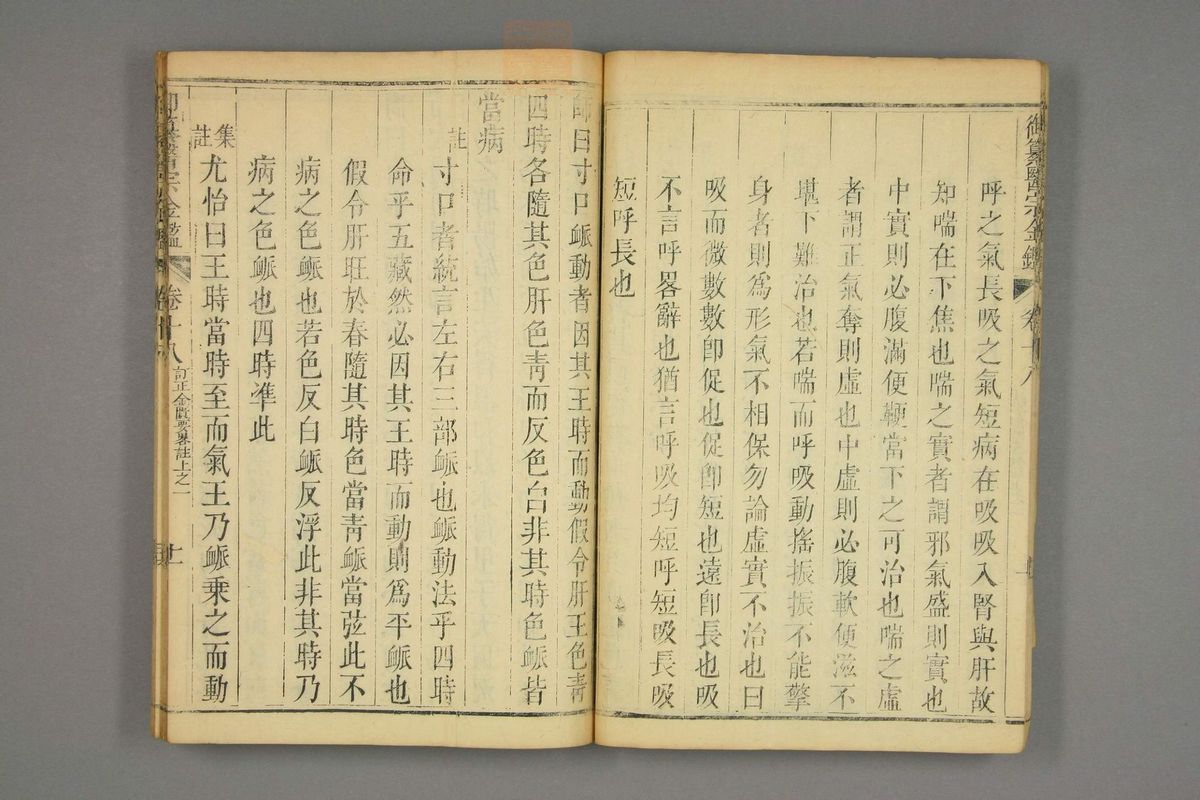 御纂醫宗金鑑 卷十八
呼之氣長吸之氣短病在吸吸入腎與肝故
知喘在下焦也喘之實者謂邪氣盛則實也
中實則必腹滿便鞕當下之可治也喘之虛
者謂正氣奪則虛也中虛則必腹軟便滋不
堪下難治也若喘而呼吸動搖振振不能擎
身者則為形氣不相保勿論虛實不治也曰
吸而微數數卽促也促卽短也遠卽長也吸
不言呼畧辭也猶言呼吸均短呼短吸長吸
短呼長也
師曰寸口衇動者因其王時而動假令肝王色青
四時各隨其色肝色青而反色白非其時色衇皆
當病
註
寸口者統言左右三部衇也衇動法乎四時
命乎五藏然必因其王時而動則為平衇也
假令肝旺於春隨其時色當青衇當弦此不
病之色衇也若色反白衇反浮此非其時乃
病之色衇也四時準此
集註
尤怡曰王時當時至而氣王乃衇乘之而動
御纂醫宗金鑑 卷十八 訂正金匱要畧註上之一